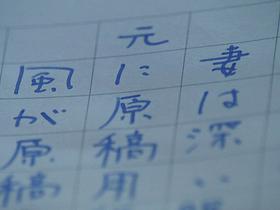 妻は深い
元に原稿用
風が原稿